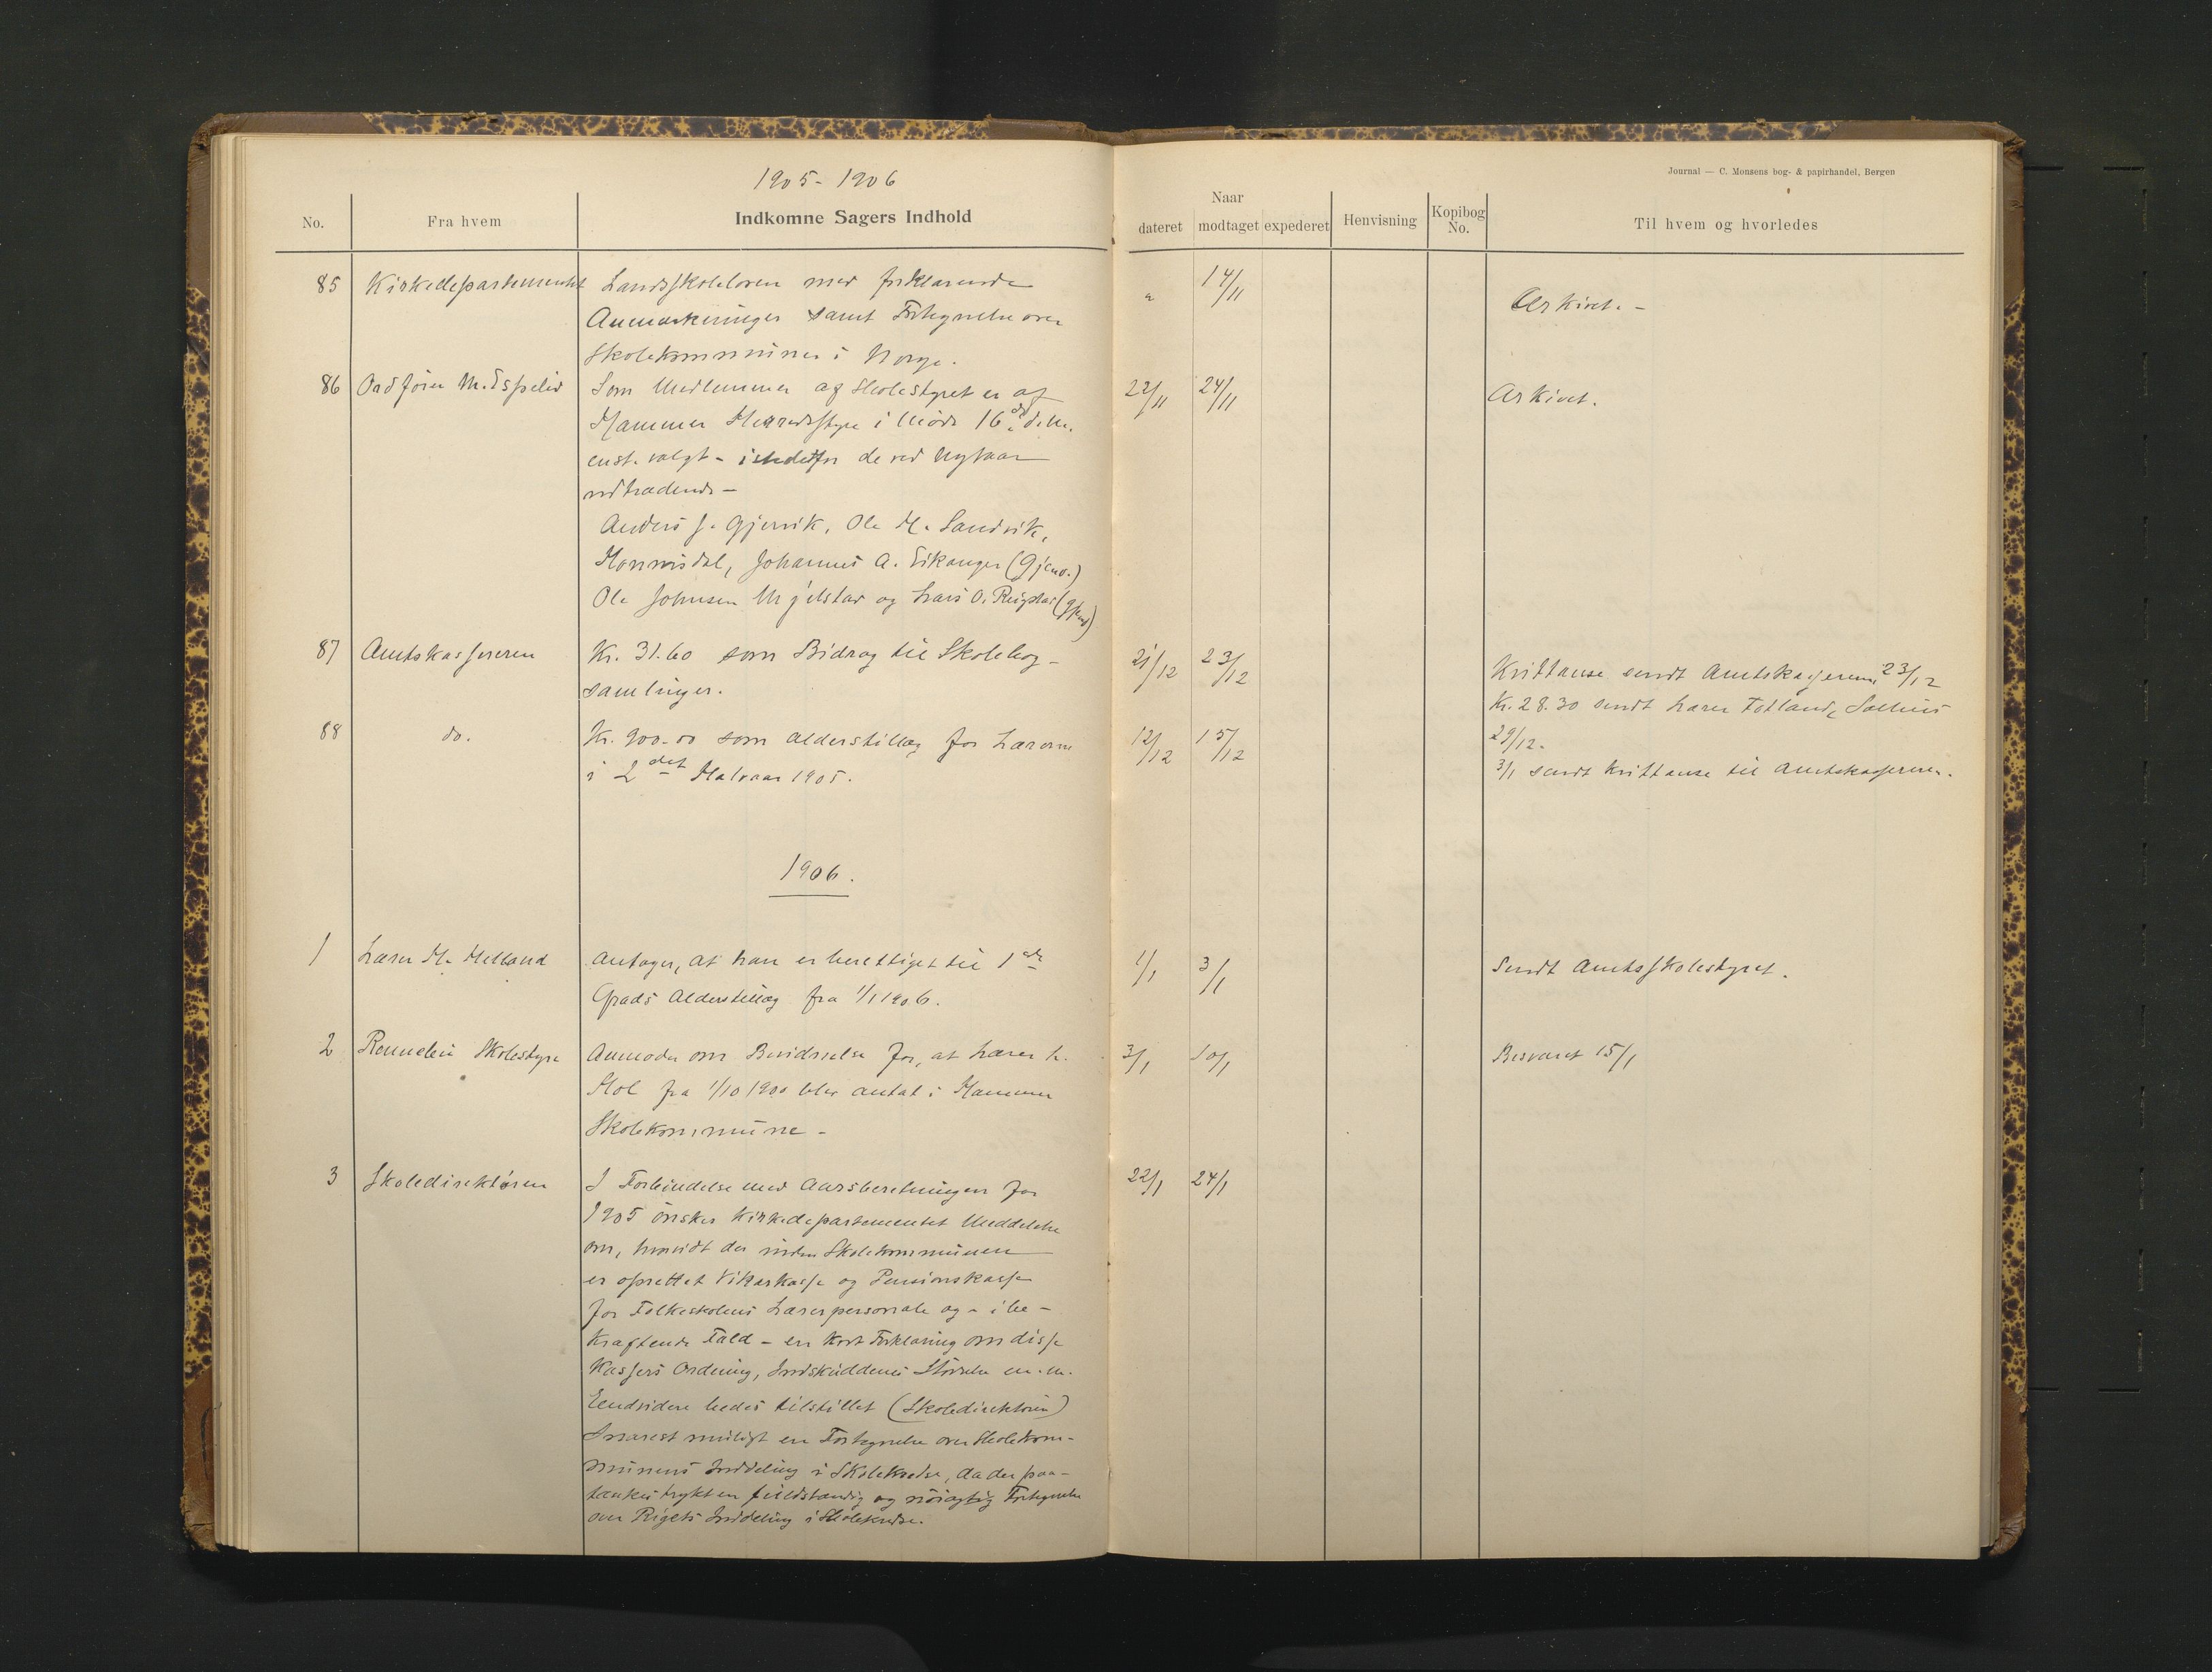 1905-1906
Journal — C. Monsens bog- & papirhandel, Bergen
No.
Fra hvem
Indkomne Sagers Indhold
Naar
dateret
modtaget
expederet
Henvisning
Kopibog No.
Til hvem og hvorledes
85 Kirkedepartementet Landsskoleloven med forklarende " 14/11 Arkivet. -
Anmærkninger samt Fortegnelse over
Skolekommuner i Norge.
86 Ordfører M. Espelid Som Medlemmer af Skolestyret er af 22/11 24/11 Arkivet.
Hammer Herredsstyre i Møde 16de d. m.
enst. valgt - istedetfor de ved Nytaar
udtrædende -
Anders J. Gjervik, Ole H. Sandvik,
Johannes A. Eikanger (Gjenv.)
Ole Johnsen Mjelstad og Lars O. Reigstad (gjenv)
87 Amtskassereren Kr. 31.60 som Bidrag til Skolebog- 21/12 23/12 Kvittanse sendt Amtskassereren 23/12
samlinger. Kr. 28.30 sendt Lærer Totland,
29/12.
88 do. Kr. 900.00 som Alderstillæg for Lærerne 12/12 15/12
i 2det Halvaar 1905. 3/1 sendt Kvittanse til Amtskassereren.
1906.
1 Lærer H. Helland Antager, at han er berettiget til 1ste 1/1 3/1 Sendt Amtsskolestyret.
Grads Alderstillæg fra 1/1 1906.
2 Skolestyre Anmoder om Bevidnelse for, at Lærer L. 3/1 10/1 Besvaret 15/1
Hol fra 1/10 1900 blev antat i Hammer
Skolekommune -
3 Skoledirektøren I Forbindelse med Aarsberetningen for 22/1 24/1
1905 ønsker Kirkedepartementet Meddelelse
om, hvorvidt der inden Skolekommunen
er oprettet Vikarkasse og Pensionskasse
for Folkeskolens Lærerpersonale og - i be-
kræftende Fald - en kort Forklaring om disse
Kassers Ordning, Indskuddenes Størrelse m. m.
Endvidere bedes tilstillet (Skoledirektøren)
snarest muligt en Fortegnelse over Skolekom-
munens Inddeling i Skolekredse, da der paa-
tænkes trykt en fuldstændig og nøiagtig Fortegnelse
over Rigets Inddeling i Skolekredse.